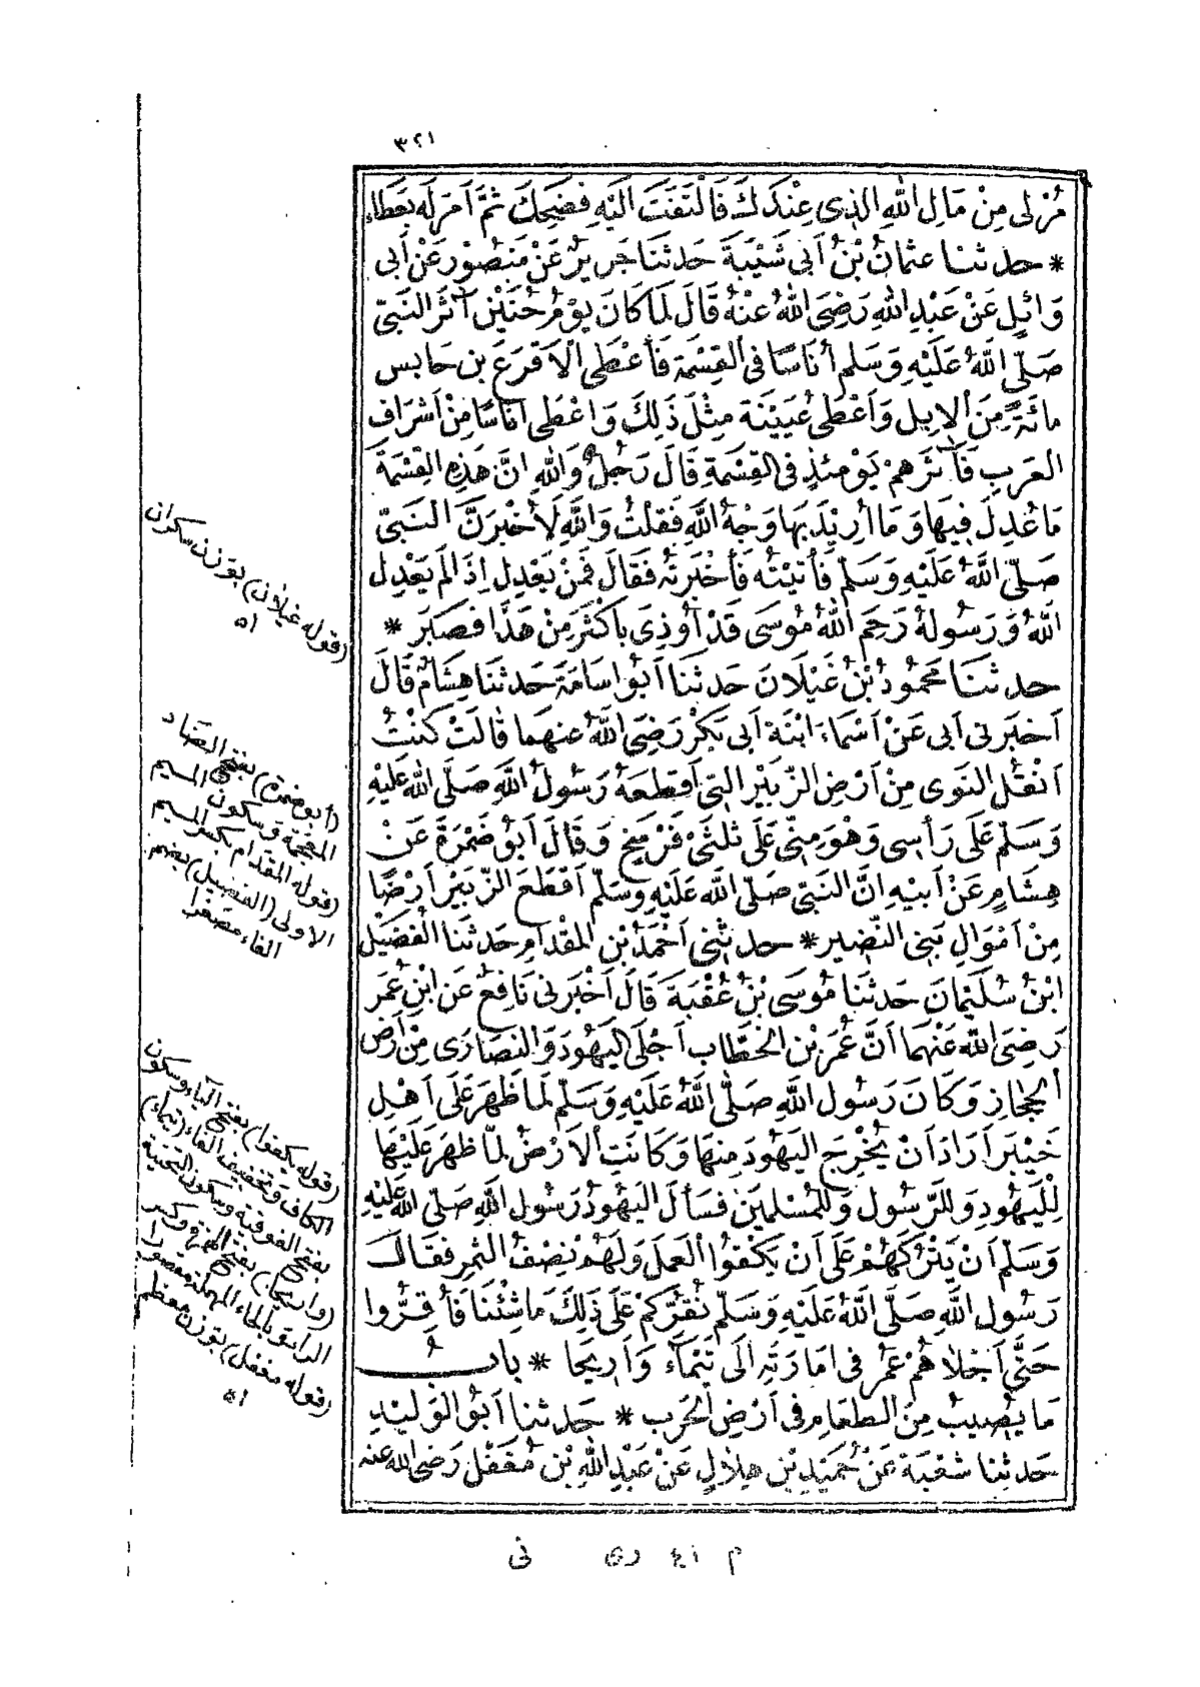 ٣٢١
مُرْ لِى مِنْ مَالِ اللهِ الذِى عِنْدَكَ فَالْتَفَتَ اَلَيْهِ فَضَحِكَ ثمَّ اَمَرَ لَه بعَطَاء
* حدثنا عثمانُ بْنُ اَبى شَيْبَةَ حَدثنَا جَرِيرٌ عَنْ مَنصُوْرٍ عَنْ اَبى
وَائِلٍ عَنْ عَبْدِ اللهِ رَضِىَ اللهُ عنْهُ قَالَ لمَا كَانَ يَوْمُ حُنَيْنٍ آثَرَ النَبىّ
صَلّى اللهُ عَلَيْهِ وَسَلم أُنَاسًا فى القِسْمَةِ فَأَعْطَى الْاَقرَعَ بن حَابس
مائَةً مِنَ الاِبِل وَاَعْطَى عُيَيْنَةَ مِثْلَ ذَلِكَ وَاعْطَى اناسًا مِنْ اَشرَافِ
العَرَبِ فَآثرَهمْ يَوْمئذٍ فى القسْمَةِ قَالَ رَجُلٌ وَاللهِ انَّ هَذِهِ القِسْمَةَ
مَا عُدِلَ فِيهَا وَمَا اُرِيْدَ بهَا وَجْهُ اللهِ فَقلْتُ وَاللهِ لَأُخْبَرَنَّ النَبىّ
صَلّى اللهُ عَلَيْهِ وَسَلّم فَأَتيْتُه فَأَخْبَرْتُه فقَالَ فَمَنْ يَعْدِل اِذَا لَمْ يَعْدِلِ
اللهُ وَرَسُولهُ رَحِمَ اللهُ مُوسَى قَدْ أُوذِىَ باَكْثَرَ مِنْ هَذَا فصَبَر *
حدثنَا مَحمُودُ بْنُ غَيْلَانَ حَدثنَا اَبُو اسَامَةَ حَدثنَا هِشَامٌ قَالَ
اَخبَرنى اَبى عَنْ اَسْمَاءَ ابْنَة اَبى بَكْرٍ رَضِىَ اللهُ عنهمَا قَالَتْ كُنْتُ
اَنْقلُ النوَى مِنْ اَرْضِ الزّبَيْرِ التى اَقطعَهُ رَسُولُ اللهِ صَلّى اللهُ عَليْهِ
وَسَلّمَ عَلَى رَأْسِى وَهْوَ مِنّى عَلَى ثلثَىْ فَرْسَخٍ وَقَالَ اَبُو ضَمْرَةَ عَنْ
هِشَامٍ عَنْ اَبيْهِ انَّ النَبىّ صَلّى الله عَلَيْهِ وَسَلّم اَقْطَعَ الزّبَيْرَ اَرْضًا
مِنْ اَمْوَالِ بَنى النَّضِير * حدثنى اَحْمَدُ بْن المقْدَامِ حَدثنَا الْفُضَيْل
ابْنُ سُلَيْمَانَ حَدثنَا مُوسَى بْنُ عُقْبَةَ قَالَ اَخْبَرنى نَافِعٌ عَن ابْنِ عُمَر
رَضِىَ اللهُ عَنْهمَا اَنَّ عُمَرَ بْن الخطّاب اَجْلَى اليَهُودَ وَالنصَارَى مِنْ اَرْض
الحِجَازِ وَكَانَ رَسُولُ اللهِ صَلّى اللهُ عَلَيْهِ وَسَلّم لمَا ظَهَرَ عَلَى اَهْلِ
خَيْبَرَ اَرَادَ اَنْ يُخْرِجَ اليَهُودَ مِنهَا وَكَانَتِ الاَرْضُ لمّا ظهَرَ عَلَيْهَا
لِلْيَهُودِ وَللرَّسُول وَللْمُسْلمينَ فسَأَلَ اليَهُودُ رَسُول اللهِ صَلّى الله عَلَيْهِ
وَسَلّم اَنْ يَتْرُكَهُمْ عَلَى اَنْ يَكْفُوا العَملَ وَلَهُمْ نِصْفُ الثمرِ فقَالَ
رَسُول اللهِ صَلّى اللهُ عَلَيْهِ وَسَلّم نُقِرُّكمْ عَلَى ذَلِكَ مَا شِئْنَا فَأُقِرُّوا
حَتَّى اَجْلَاهُمْ عُمَرُ فى امَارَتِه الَى تَيْمَاءَ وَاَرِيحَا * بابُ
مَا يُصِيبُ مِنَ الطعَامِ فى اَرْضِ الحَرْب * حَدثنا اَبُو الوَلِيْدِ
حَدثنا شعْبَة عَنْ حُمَيْدِ بْنِ هِلَالٍ عَنْ عَبْدِ اللهِ بْن مُغَفّل رَضى الله عنه
(قوله غيلان) بوزن سكران
اه
(أبو ضمرة) بفتح الضاد
المعجمة وسكون الميم
(قوله المقدام) بكسر الميم
الاولى (الفضيل) بضم
الفاء مصغرا
(قوله يكفوا) بفتح الياء وسكون
الكاف وتخفيف الفاء (تيماء)
بفتح الفوقية وسكون التحتية
(واريحا) بفتح الهمزة وكسر
الراء وبالحاء المهملة مقصورا
(قوله مغفل) بوزن معظم
اه
فى